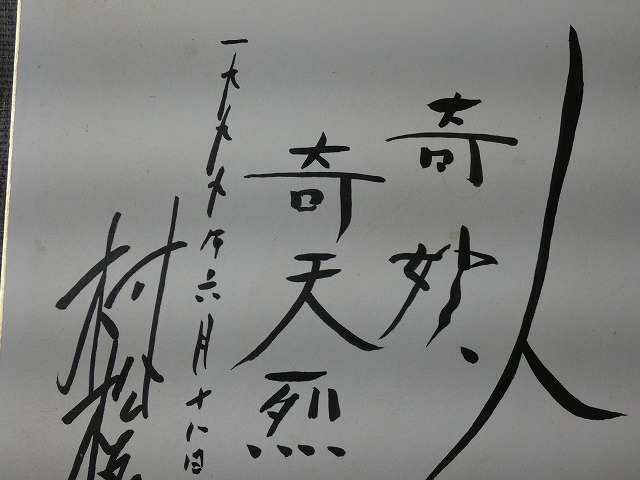 人
奇妙、
奇天烈
一九九九年六月十八日
村松